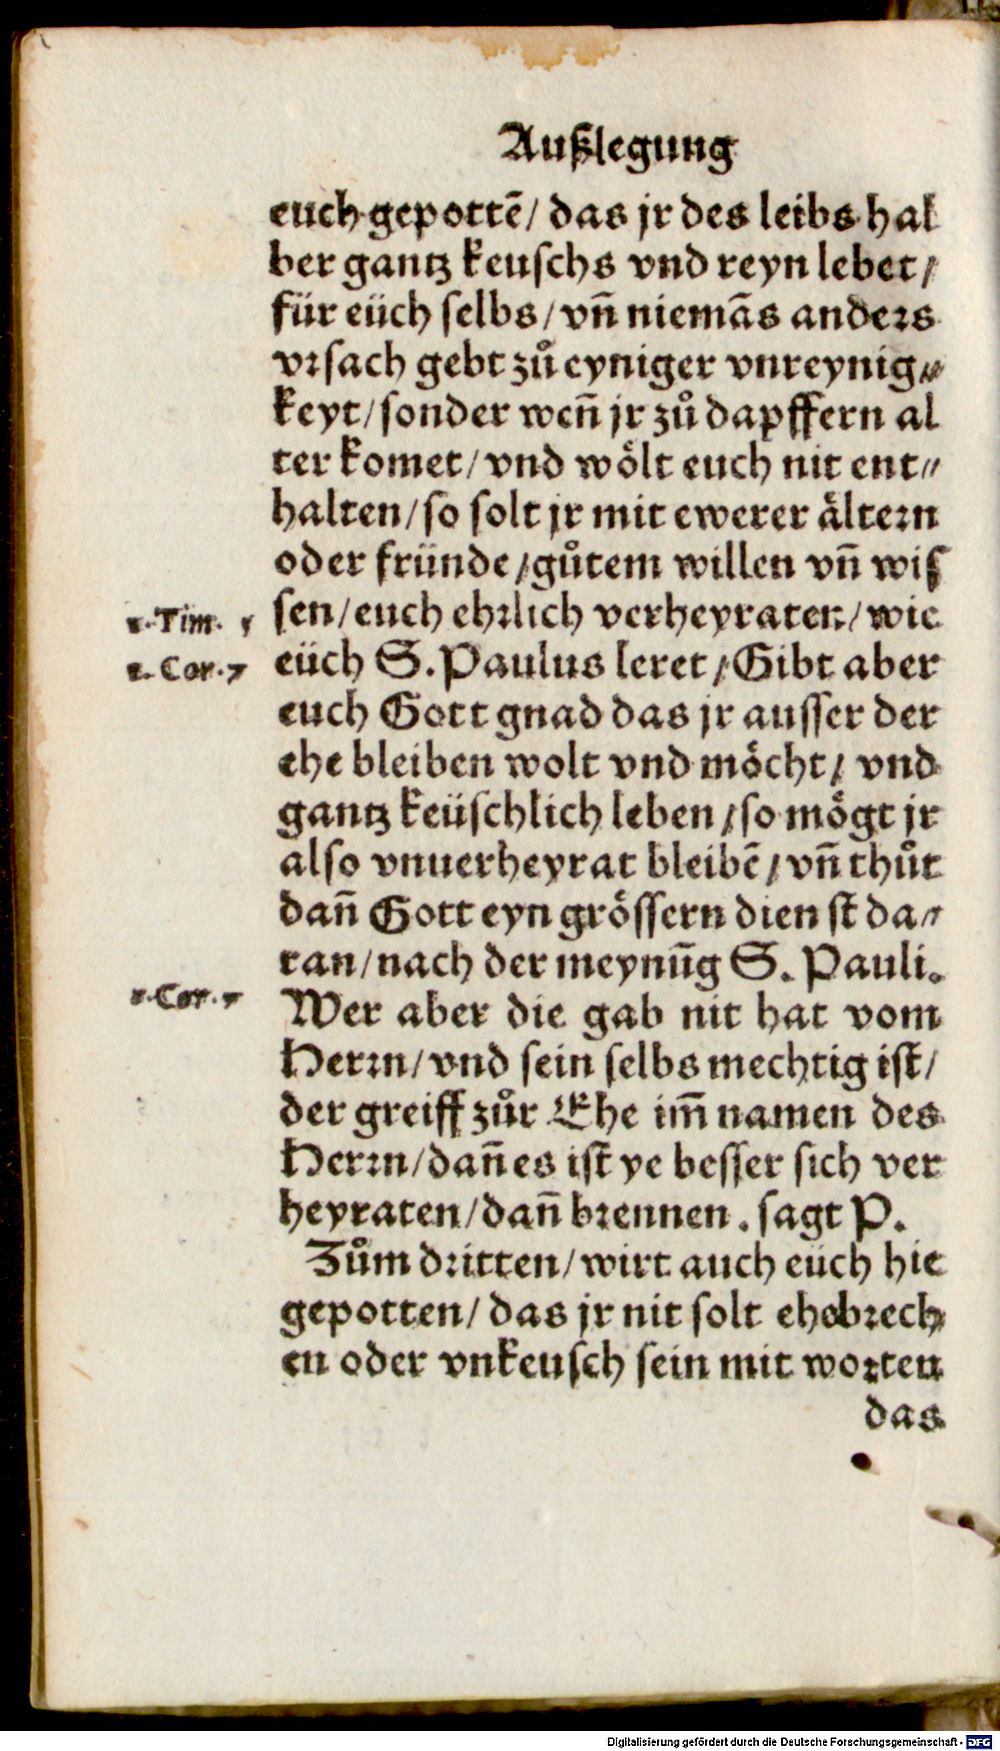 Außlegung
euch gepottē/ das jr des leibs hal
ber gantz keuschs vnd reyn lebet/
für eüch selbs/ vn̄ niemās anders
vrsach gebt zů eyniger vnreynig⸗
keyt/ sonder wen̄ jr zů dapffern al
ter komet/ vnd wölt euch nit ent⸗
halten/ so solt jr mit ewerer ältern
oder fründe/ gůtem willen vn̄ wis
1. Tim. 5
sen/ euch ehrlich verheyraten/ wie
1. Cor. 7
eüch S. Paulus leret/ Gibt aber
euch Gott gnad das jr ausser der
ehe bleiben wolt vnd möcht/ vnd
gantz keüschlich leben/ so mögt jr
also vnuerheyrat bleibē/ vn̄ thůt
dan̄ Gott eyn grössern dienst da⸗
ran/ nach der meynūg S. Pauli.
1. Cor. 7
Wer aber die gab nit hat vom
Herrn/ vnd sein selbs mechtig ist/
der greiff zůr Ehe im̄ namen des
Herrn/ dan̄ es ist ye besser sich ver
heyraten/ dan̄ brennen. sagt P.
Zům dritten/ wirt auch eüch hie
gepotten/ das jr nit solt ehebrech
en oder vnkeusch sein mit worten
das
Digitalisierung gefördert durch die Deutsche Forschungsgemeinschaft - DFG